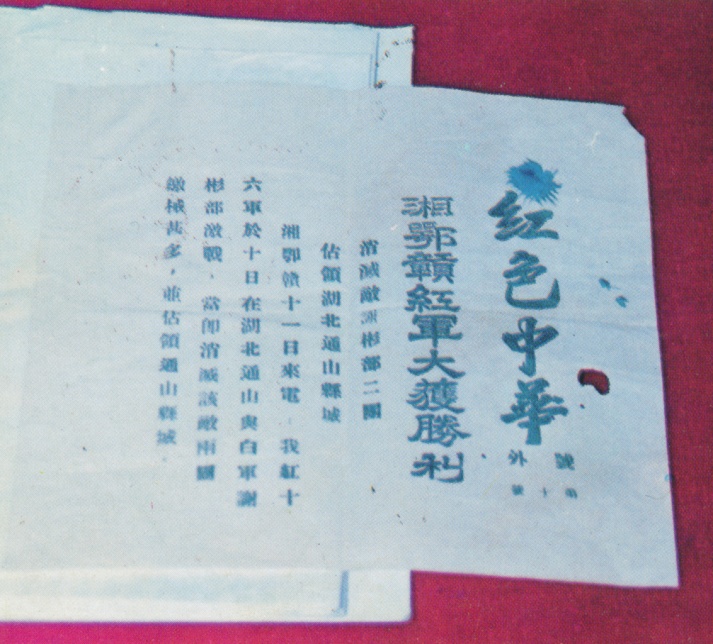 紅色中華
號外
第十號
湘鄂贛紅軍大獲勝利
消滅敵謝彬部二團
佔領湖北通山縣城
湘鄂贛十一日來電，我紅十
六軍於十日在湖北通山與白軍謝
彬部激戰，當卽消滅該敵兩團
繳械甚多，並佔領通山縣城